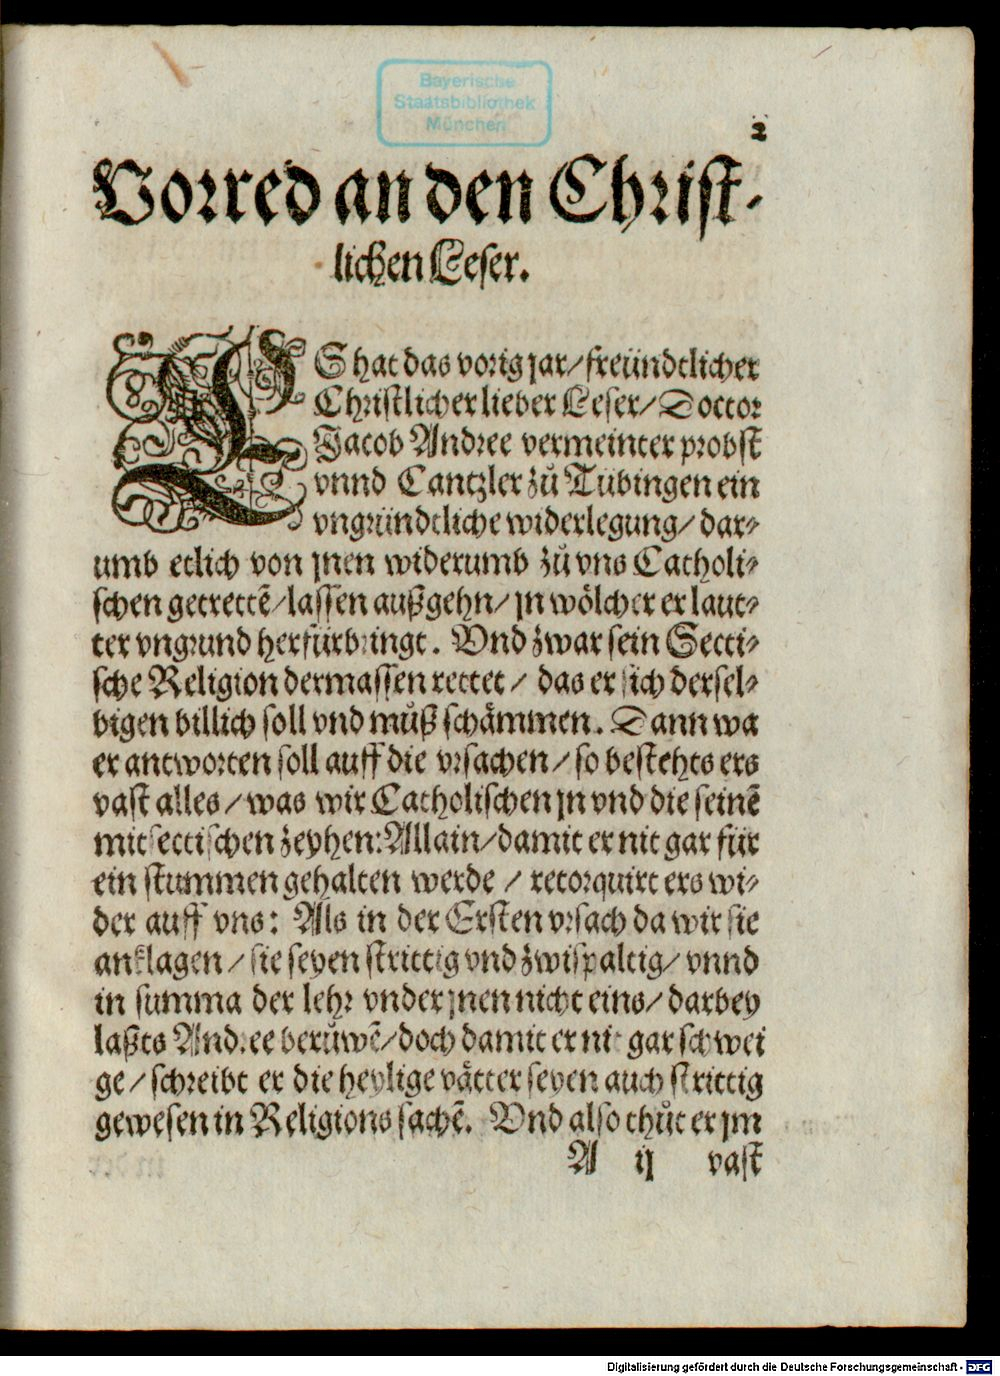 Bayerische
Staatsbibliothek
München
2
Vorred an den Christ-
lichen Leser.
ES hat das vorig jar/ freündtlicher
Christlicher lieber Leser/ Doctor
Jacob Andree vermeinter probst
vnnd Cantzler zů Tübingen ein
vngründtliche widerlegung/ dar-
umb etlich von jnen widerumb zů vns Catholi-
schen getrettē/ lassen außgehn/ jn wölcher er laut-
ter vngrund herfürbringt. Vnd zwar sein Secti-
sche Religion dermassen rettet/ das er sich dersel-
bigen billich soll vnd můß schämmen. Dann wa
er antworten soll auff die vrsachen/ so bestehts ers
vast alles/ was wir Catholischen jn vnd die seinē
mit sectischen zeyhen: Allain/ damit er nit gar für
ein stummen gehalten werde/ retorquirt ers wi-
der auff vns: Als in der Ersten vrsach da wir sie
anklagen/ sie seyen strittig vnd zwispaltig/ vnnd
in summa der lehr vnder jnen nicht eins/ darbey
laßts Andree berůwē/ doch damit er nit gar schwei
ge/ schreibt er die heylige vätter seyen auch strittig
gewesen in Religions sachē. Vnd also thůt er jm
A ij vast
Digitalisierung gefördert durch die Deutsche Forschungsgemeinschaft - DFG